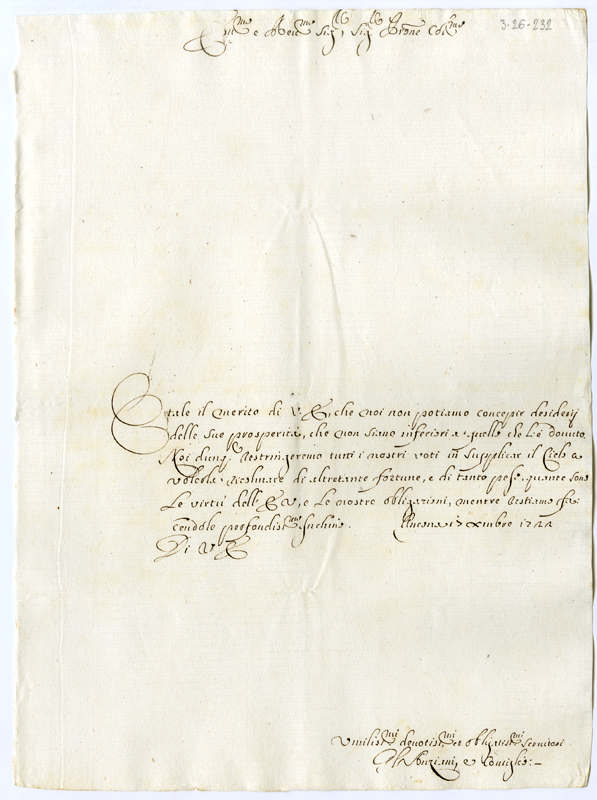 3-26-232
Em.mo e Rev.mo Sig.r, Sig.r Prone Col.mo
E tale il merito di V. E., che noi non potiamo concepir desiderij
delle sue prosperità, che non siano inferiori a quelle che l'è dovuto.
Noi dunq. restringeremo tutti i nostri voti in supplicar il Cielo a
volerla ricolmare di altretante fortune, e di tanto pese. quante sono
Le virtù dell'E. V., e Le nostre obligazioni, mentre restiamo fa:
cendole profondiss.mi Inchini. Ancona 13 Xmbre 1722
Di V. E.
Umiliss.mi devotiss.mi et obligatiss.mi Servitori
Gl'Anziani, e Consiglio:-